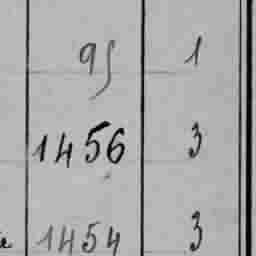 95 1
1456 3
1454 3